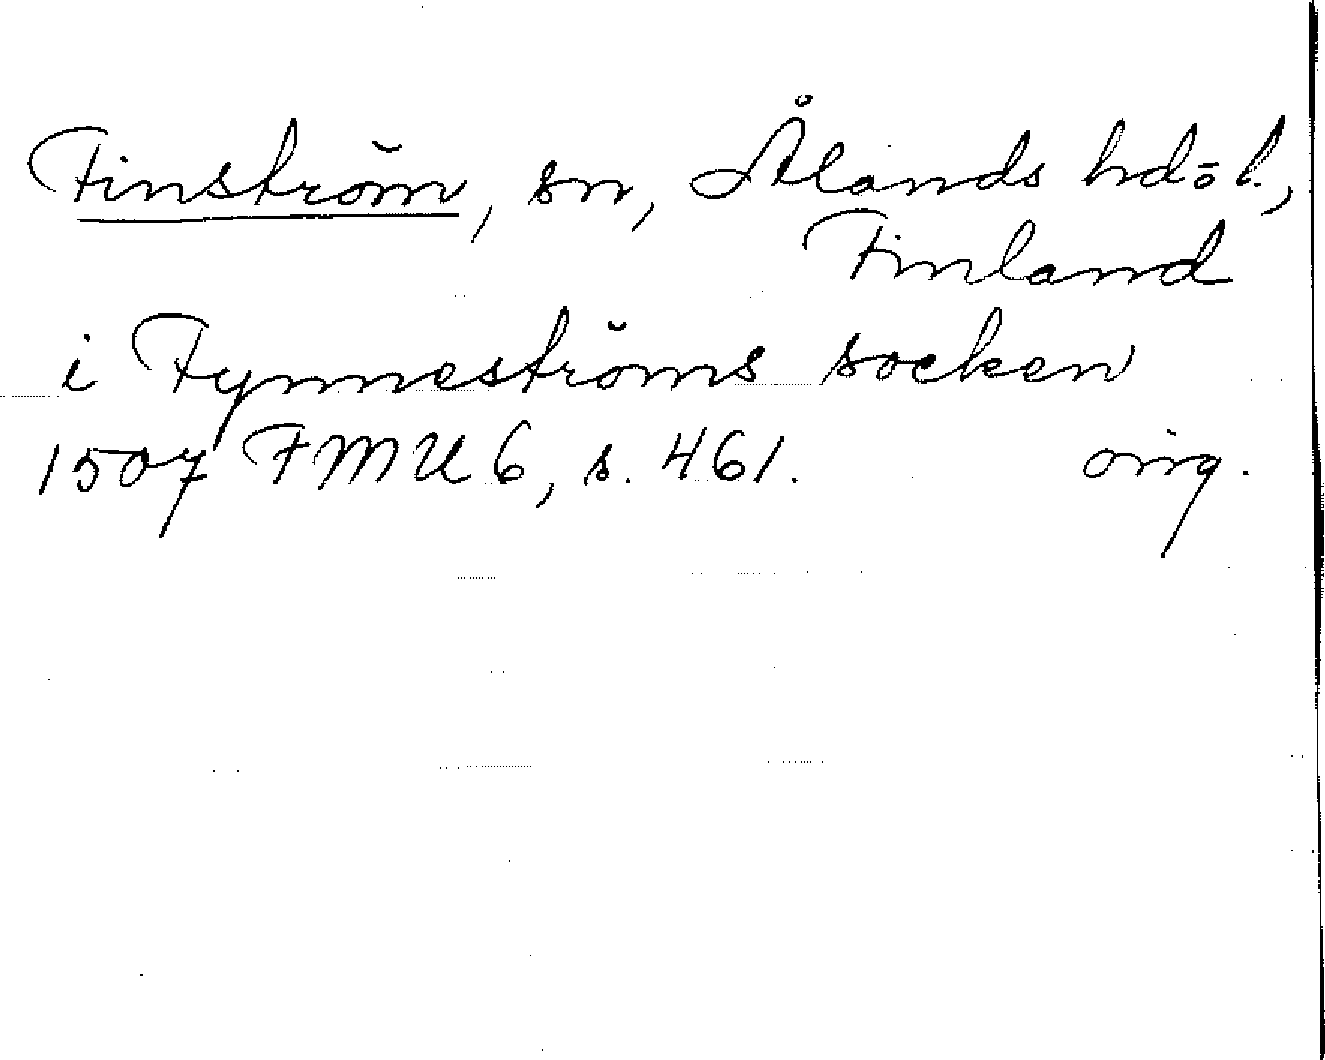 Finström, sn, Ålands hd o l.,
Finland
i Fynneströms socken
1507 FMU 6, s. 461. orig.